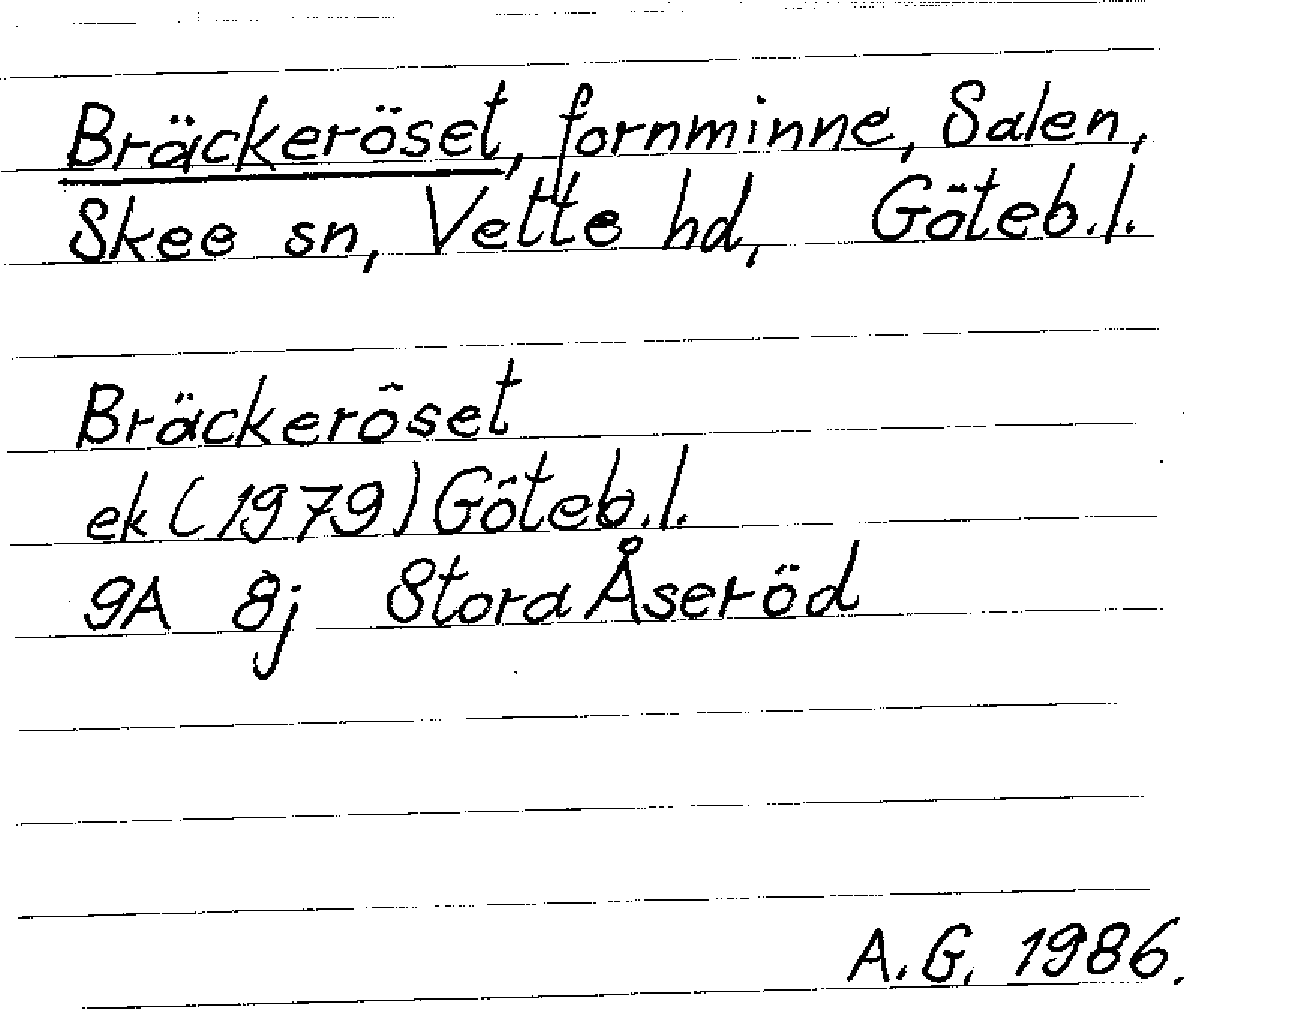 Bräckeröset, fornminne, Salen,
Skee sn, Vette hd, Göteb.l.
Bräckeröset
ek (1979) Göteb.l.
9A 8j Stora Åseröd
A.G. 1986.